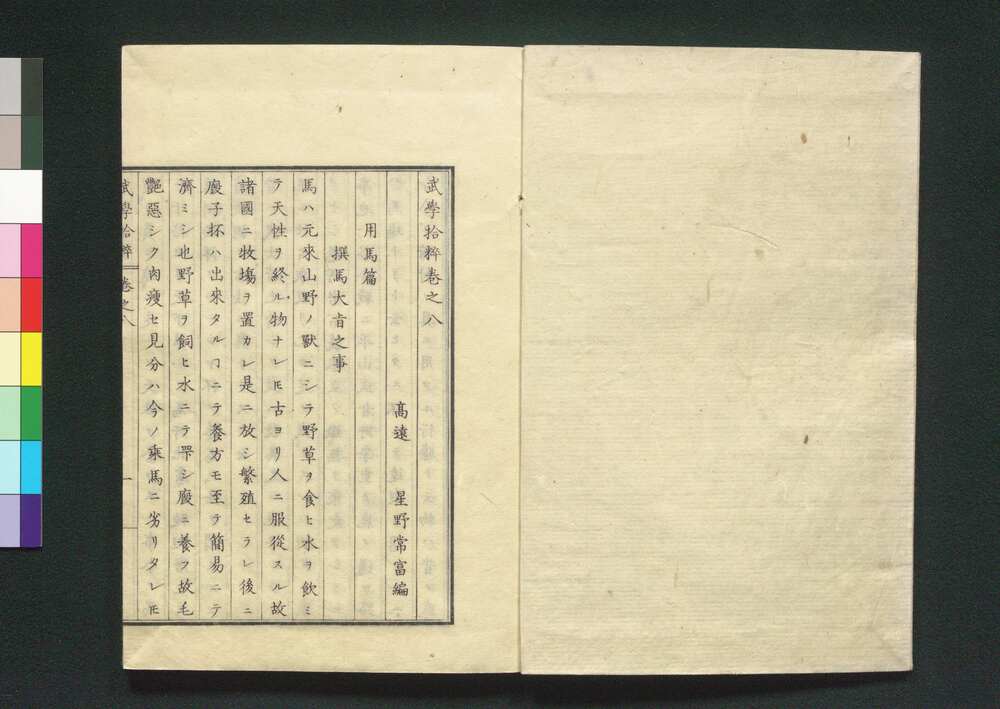 武學拾粹卷之八
高遠 星野常富編
用馬篇
撰馬大旨之事
馬ハ元來山野ノ獸ニシテ野草ヲ食ヒ水ヲ飲ミ
テ天性ヲ終ル物ナレ𪜈古ヨリ人ニ服從スル故
諸國ニ牧塲ヲ置カレ是ニ放シ繁殖セラレ後ニ
廄子抔ハ出來タルヿニテ養方モ至テ簡易ニテ
濟ミシ也野草ヲ飼ヒ水ニテ罘シ廄ニ養フ故毛
艶惡シク肉瘦セ見分ハ今ノ乘馬ニ劣リタレ𪜈
武學拾粹 卷之八 一